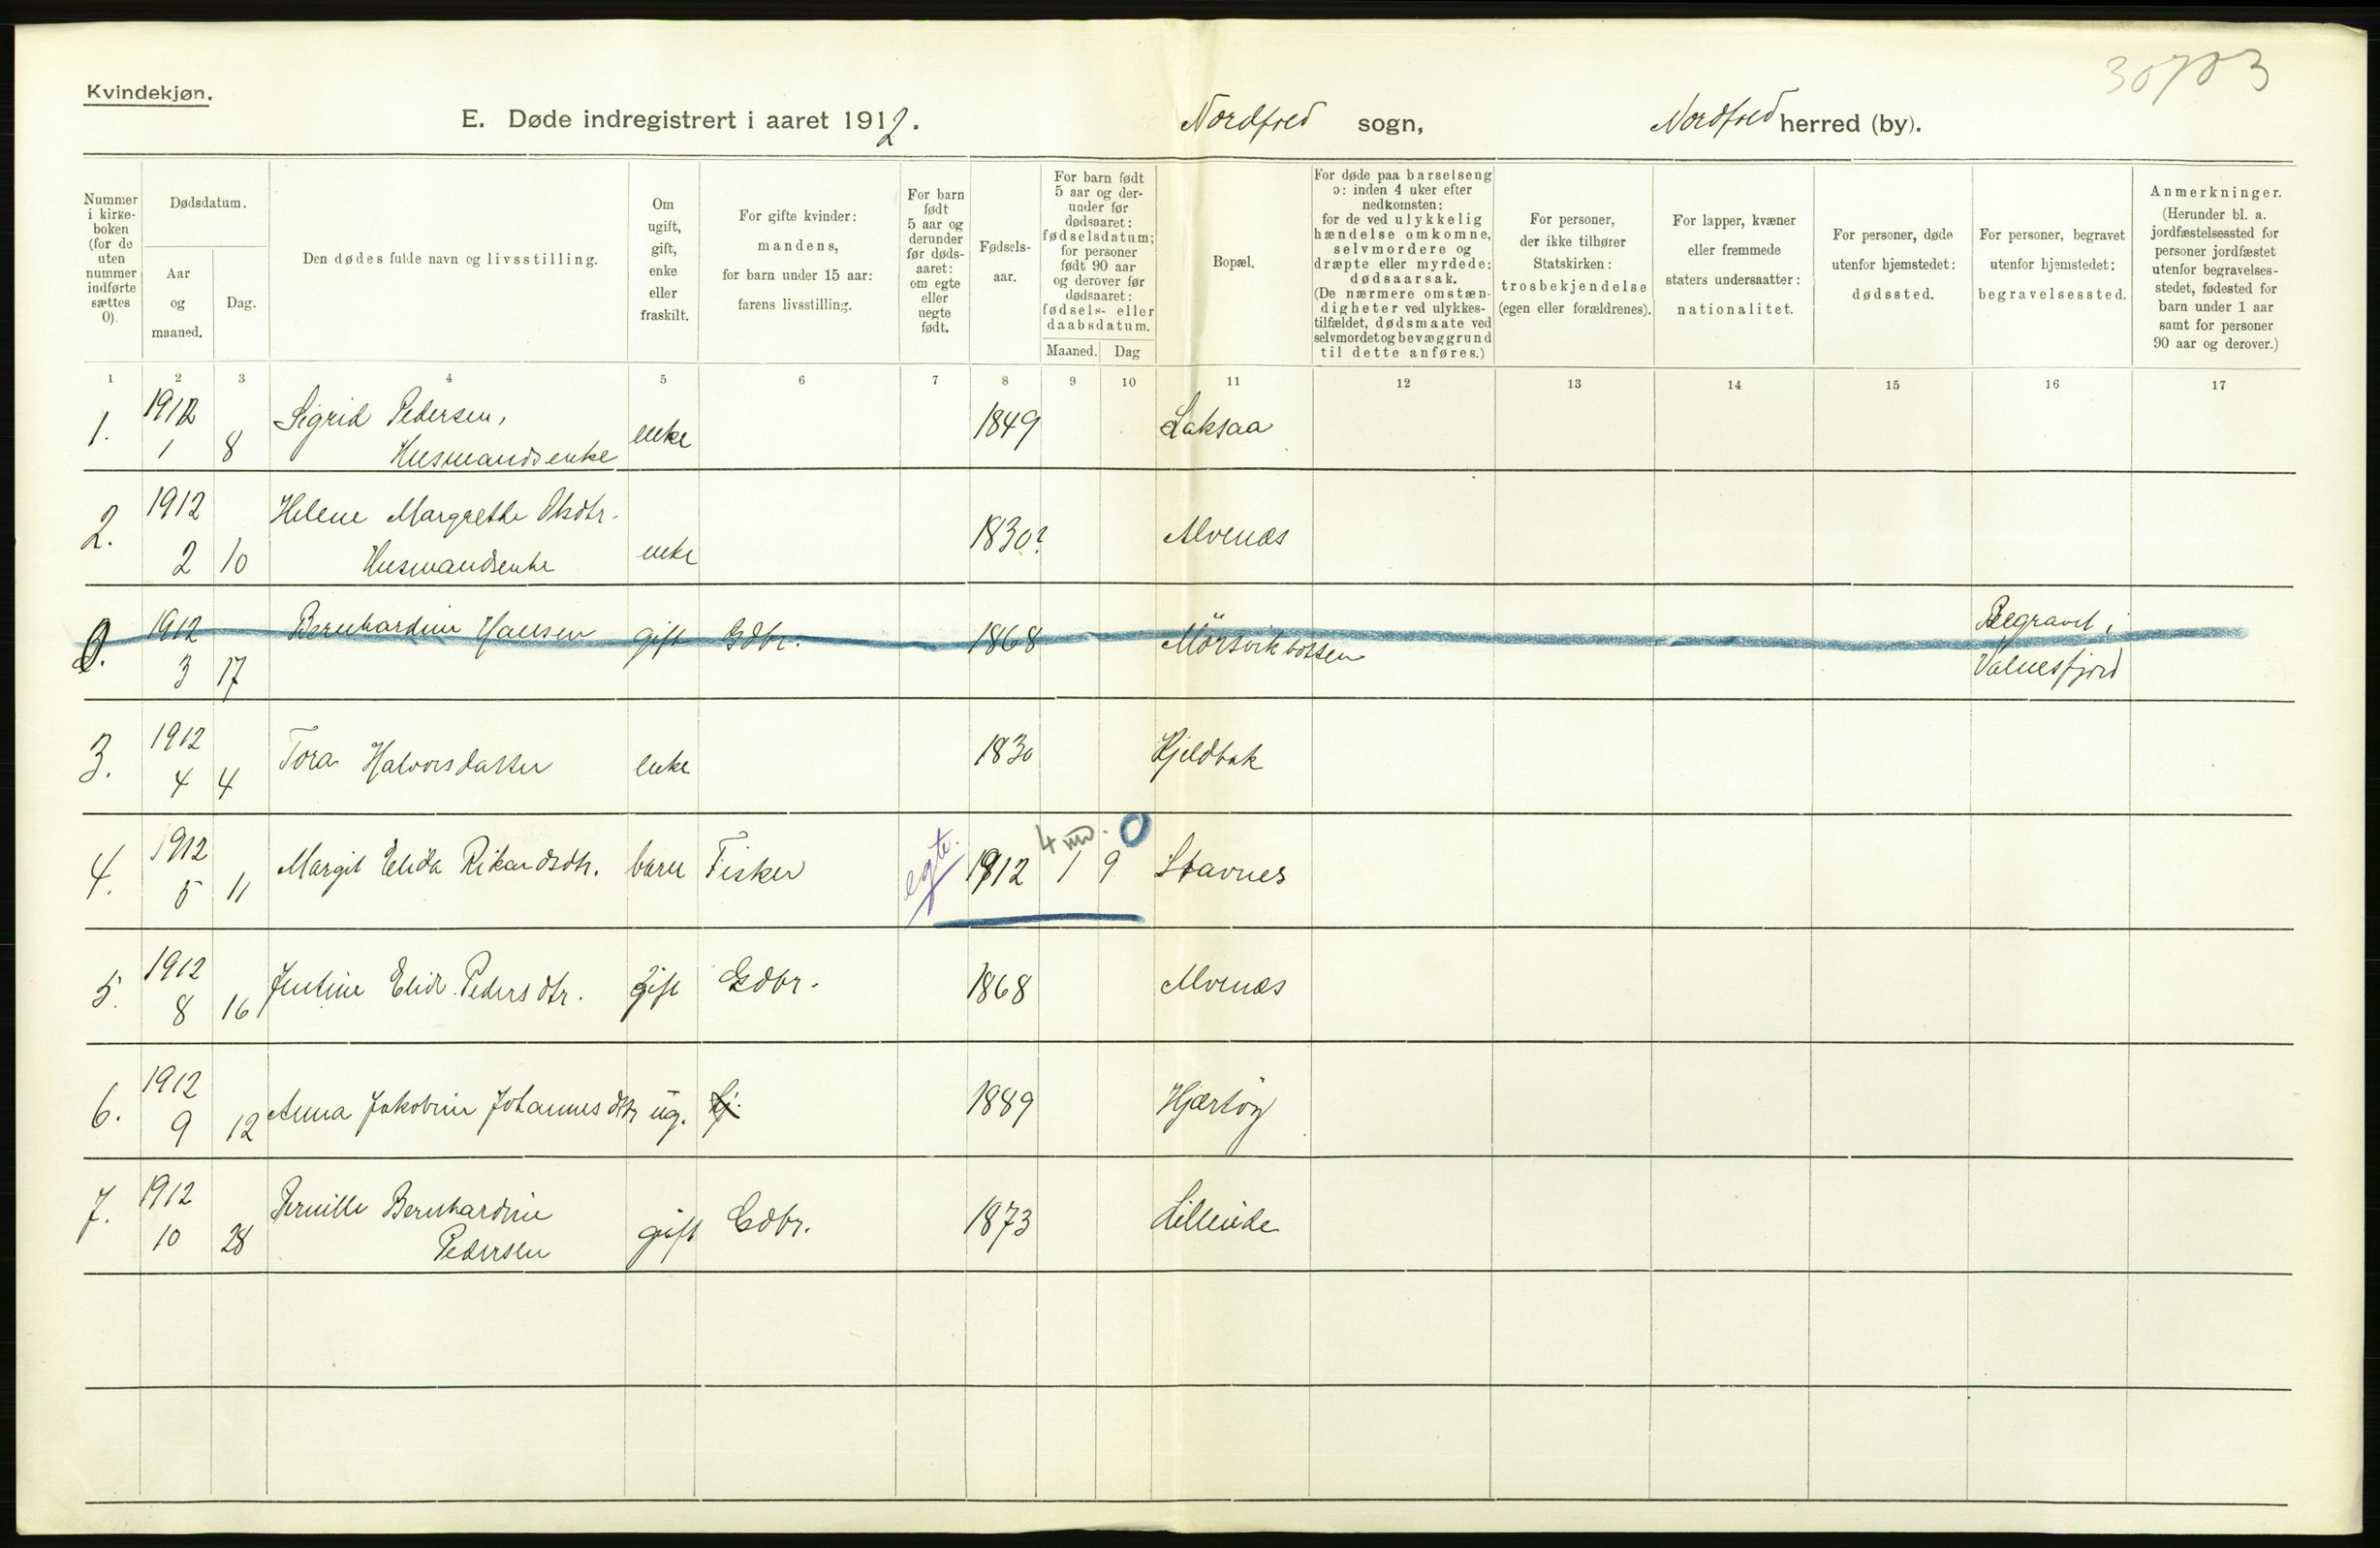 30703
Kvindekjøn.
E. Døde indregistrert i aaret 1912.
Nordfold sogn,
Nordfold herred (by).
Nummer i kirke-boken (for de uten nummer indførte sættes 0).
Dødsdatum.
Aar og maaned.
Dag.
Den dødes fulde navn og livsstilling.
Om ugift, gift, enke eller fraskilt.
For gifte kvinder: mandens, for barn under 15 aar: farens livsstilling.
For barn født 5 aar og derunder før døds-aaret: om egte eller uegte født.
Fødsels-aar.
For barn født 5 aar og der-under før dødsaaret: fødselsdatum; for personer født 90 aar og derover før dødsaaret: fødsels- eller daabsdatum.
Maaned. Dag
Bopæl.
For døde paa barselseng ɔ: inden 4 uker efter nedkomsten: for de ved ulykkelig hændelse omkomne, selvmordere og dræpte eller myrdede: dødsaarsak. (De nærmere omstæn-digheter ved ulykkes-tilfældet, dødsmaate ved selvmordet og bevæggrund til dette anføres.)
For personer, der ikke tilhører Statskirken: trosbekjendelse (egen eller forældrenes).
For lapper, kvæner eller fremmede staters undersaatter: nationalitet.
For personer, døde utenfor hjemstedet: dødssted.
For personer, begravet utenfor hjemstedet: begravelsessted.
Anmerkninger. (Herunder bl. a. jordfæstelsessted for personer jordfæstet utenfor begravelses-stedet, fødested for barn under 1 aar samt for personer 90 aar og derover.)
1 2 3 4 5 6 7 8 9 10 11 12 13 14 15 16 17
1. 1912 1 8 Sigrid Pedersen, Husmandsenke enke 1849 Laksaa
2. 1912 2 10 Helene Margrethe Olsdtr. Husmandsenke enke 1830? Alvenæs
0. 1912 3 17 Bernhardine Hansen gift Gdbr. 1868 Mörsvikbotten Begravet i Valnesfjord
3. 1912 4 4 Tora Halvorsdatter enke 1830 Kjeldbak
4. 1912 5 11 Margit Elida Rikardsdtr. barn Fisker egte. 1912 4 md. 1 9 0 Stavnes
5. 1912 8 16 Jentine Elid. Pedersdtr. gift Gdbr. 1868 Alvenæs
6. 1912 9 12 Anna Jakobine Johannesdtr ug. 1889 Hjærtöy
7. 1912 10 28 Pernille Bernhardine Pedersen gift Gdbr. 1873